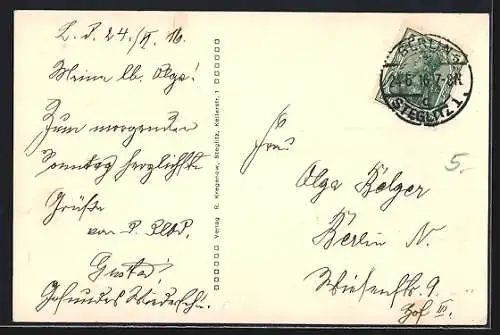 24./VI. 16.
Meine lb. Olga!
Zum morgenden
Sonntag herzlichste
Grüße
von
Gustav
Gesundes Wiedersehn.
Verlag R. Kregenow, Steglitz, Kellerstr. 1
BERLIN-
24.6.16.7-8N.
STEGLITZ 1
Frau
Olga Belger
Berlin N.
Wiesenstr. 9
Hof III.
5.